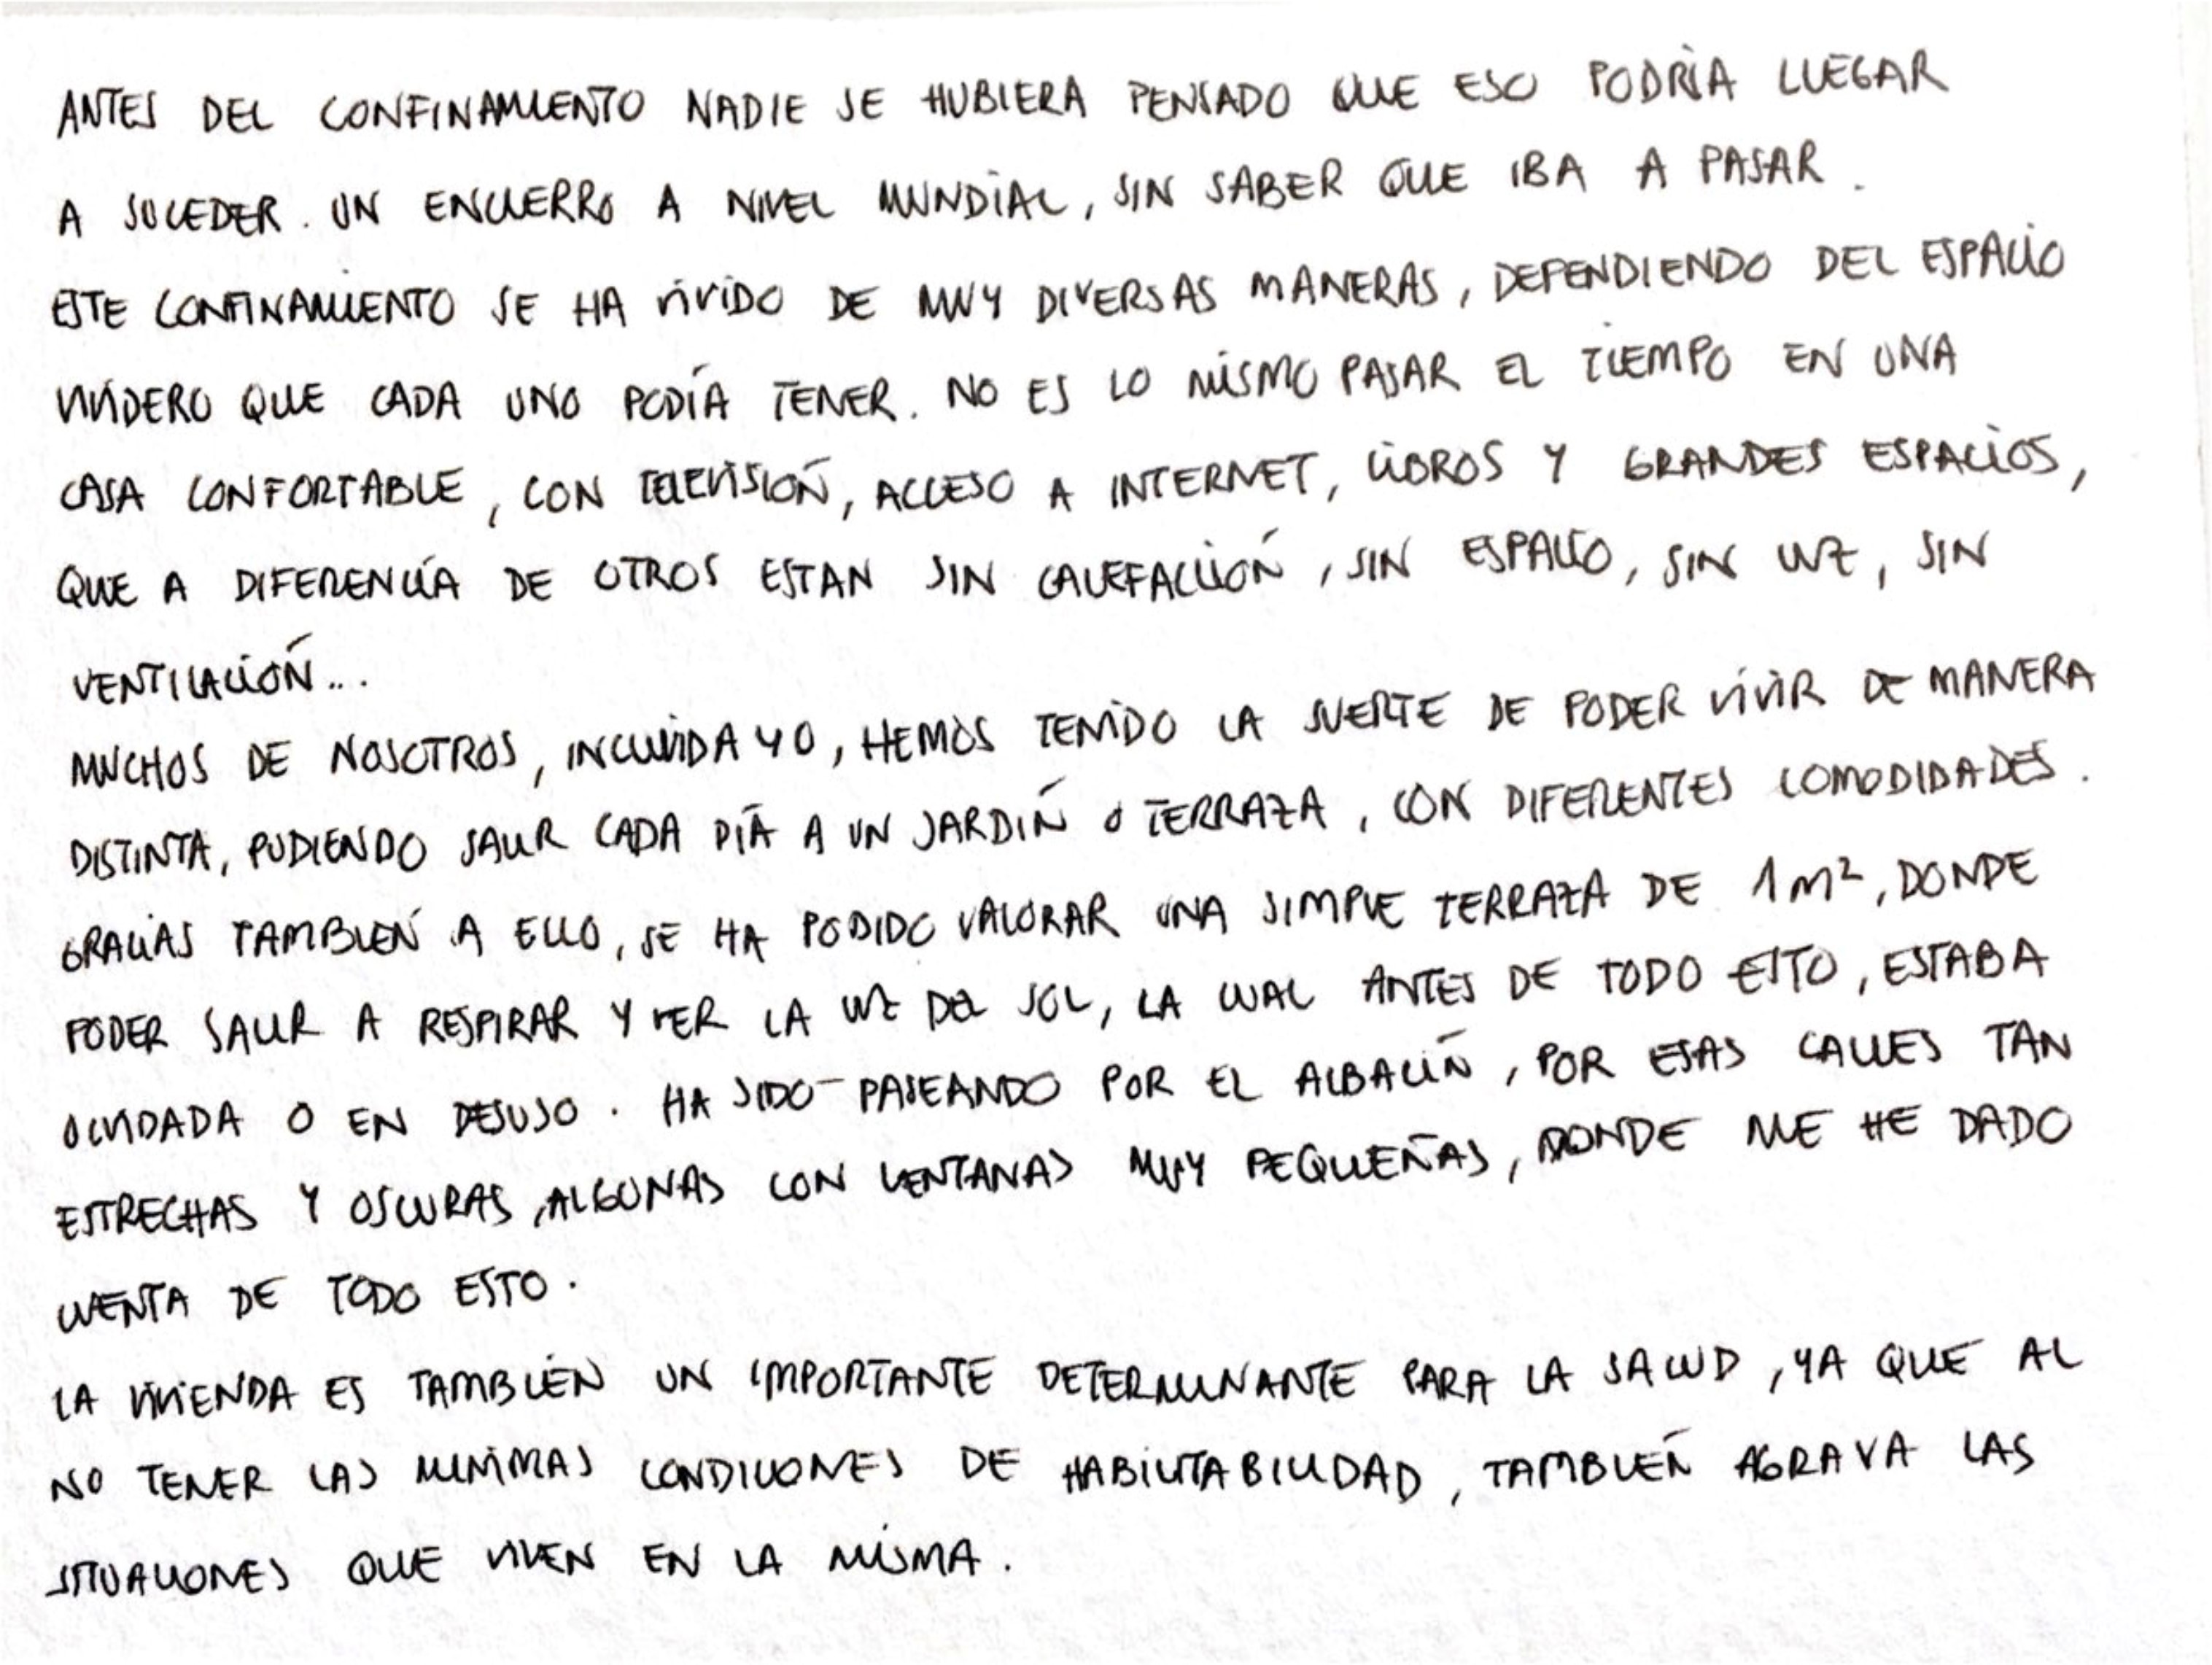 ANTES DEL CONFINAMIENTO NADIE SE HUBIERA PENSADO QUE ESO PODRÍA LLEGAR
A SUCEDER. UN ENCIERRO A NIVEL MUNDIAL, SIN SABER QUE IBA A PASAR.
ESTE CONFINAMIENTO SE HA VIVIDO DE MUY DIVERSAS MANERAS, DEPENDIENDO DEL ESPACIO
VIVIDERO QUE CADA UNO PODÍA TENER. NO ES LO MISMO PASAR EL TIEMPO EN UNA
CASA CONFORTABLE, CON TELEVISIÓN, ACCESO A INTERNET, LIBROS Y GRANDES ESPACIOS,
QUE A DIFERENCIA DE OTROS ESTAN SIN CALEFACCIÓN, SIN ESPACIO, SIN LUZ, SIN
VENTILACIÓN...
MUCHOS DE NOSOTROS, INCLUIDA YO, HEMOS TENIDO LA SUERTE DE PODER VIVIR DE MANERA
DISTINTA, PUDIENDO SALIR CADA DÍA A UN JARDÍN O TERRAZA, CON DIFERENTES COMODIDADES.
GRACIAS TAMBIÉN A ELLO, SE HA PODIDO VALORAR UNA SIMPLE TERRAZA DE 1 m², DONDE
PODER SALIR A RESPIRAR Y VER LA LUZ DEL SOL, LA CUAL ANTES DE TODO ESTO, ESTABA
OLVIDADA O EN DESUSO. HA SIDO PASEANDO POR EL ALBAICÍN, POR ESAS CALLES TAN
ESTRECHAS Y OSCURAS, ALGUNAS CON VENTANAS MUY PEQUEÑAS, DONDE ME HE DADO
CUENTA DE TODO ESTO.
LA VIVIENDA ES TAMBIÉN UN IMPORTANTE DETERMINANTE PARA LA SALUD, YA QUE AL
NO TENER LAS MINIMAS CONDICIONES DE HABILITABILIDAD, TAMBIÉN AGRAVA LAS
SITUACIONES QUE VIVEN EN LA MISMA.